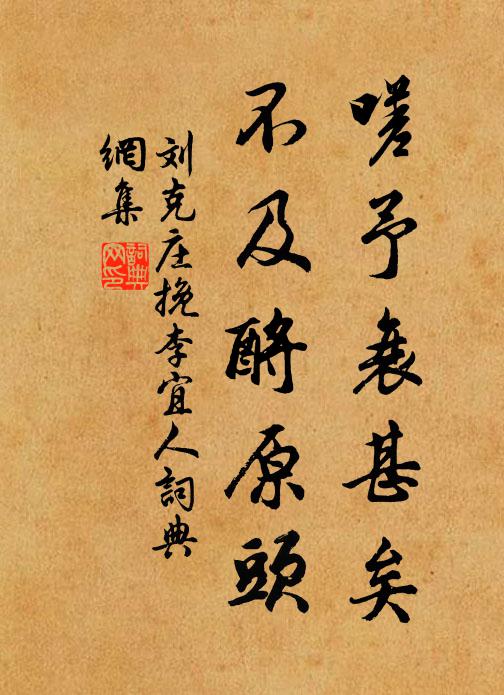 嗟予衰甚矣
不及酹原頭
刘克庄挽李宜人詞典
網集
詞典
网印